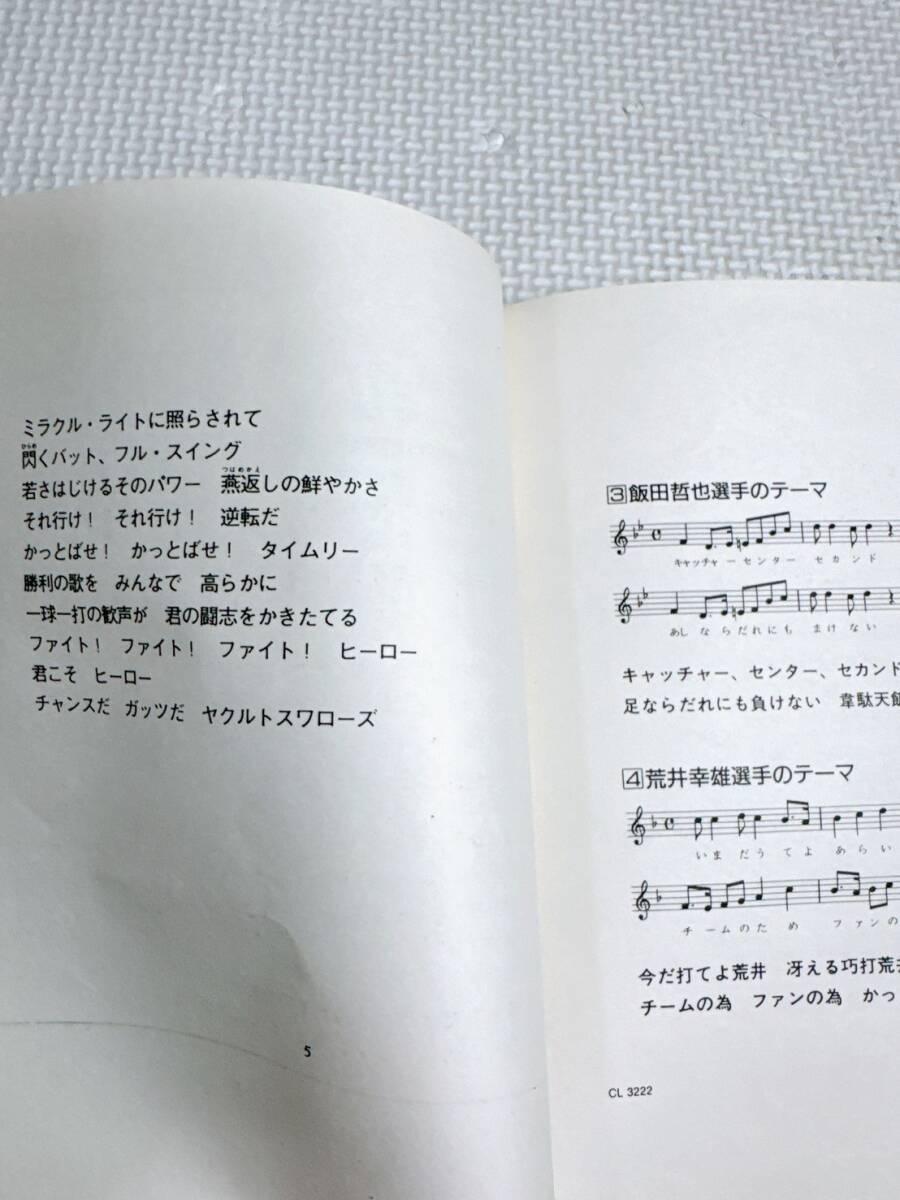 ミラクル・ライトに照らされて
閃くバット、フル・スイング
若さはじけるそのパワー　燕返しの鮮やかさ
それ行け！　それ行け！　逆転だ
かっとばせ！　かっとばせ！　タイムリー
勝利の歌を　みんなで　高らかに
一球一打の歓声が　君の闘志をかきたてる
ファイト！　ファイト！　ファイト！　ヒーロー
君こそ　ヒーロー
チャンスだ　ガッツだ　ヤクルトスワローズ
5
3飯田哲也選手のテーマ
キャッチャーセンター　セカンド
あしならだれにも　まけない
キャッチャー、センター、セカンド
足ならだれにも負けない　韋駄天飯
4荒井幸雄選手のテーマ
いまだうてよあらい
チームのため　ファンの
今だ打てよ荒井　冴える巧打荒井
チームの為　ファンの為　かっ
CL 3222